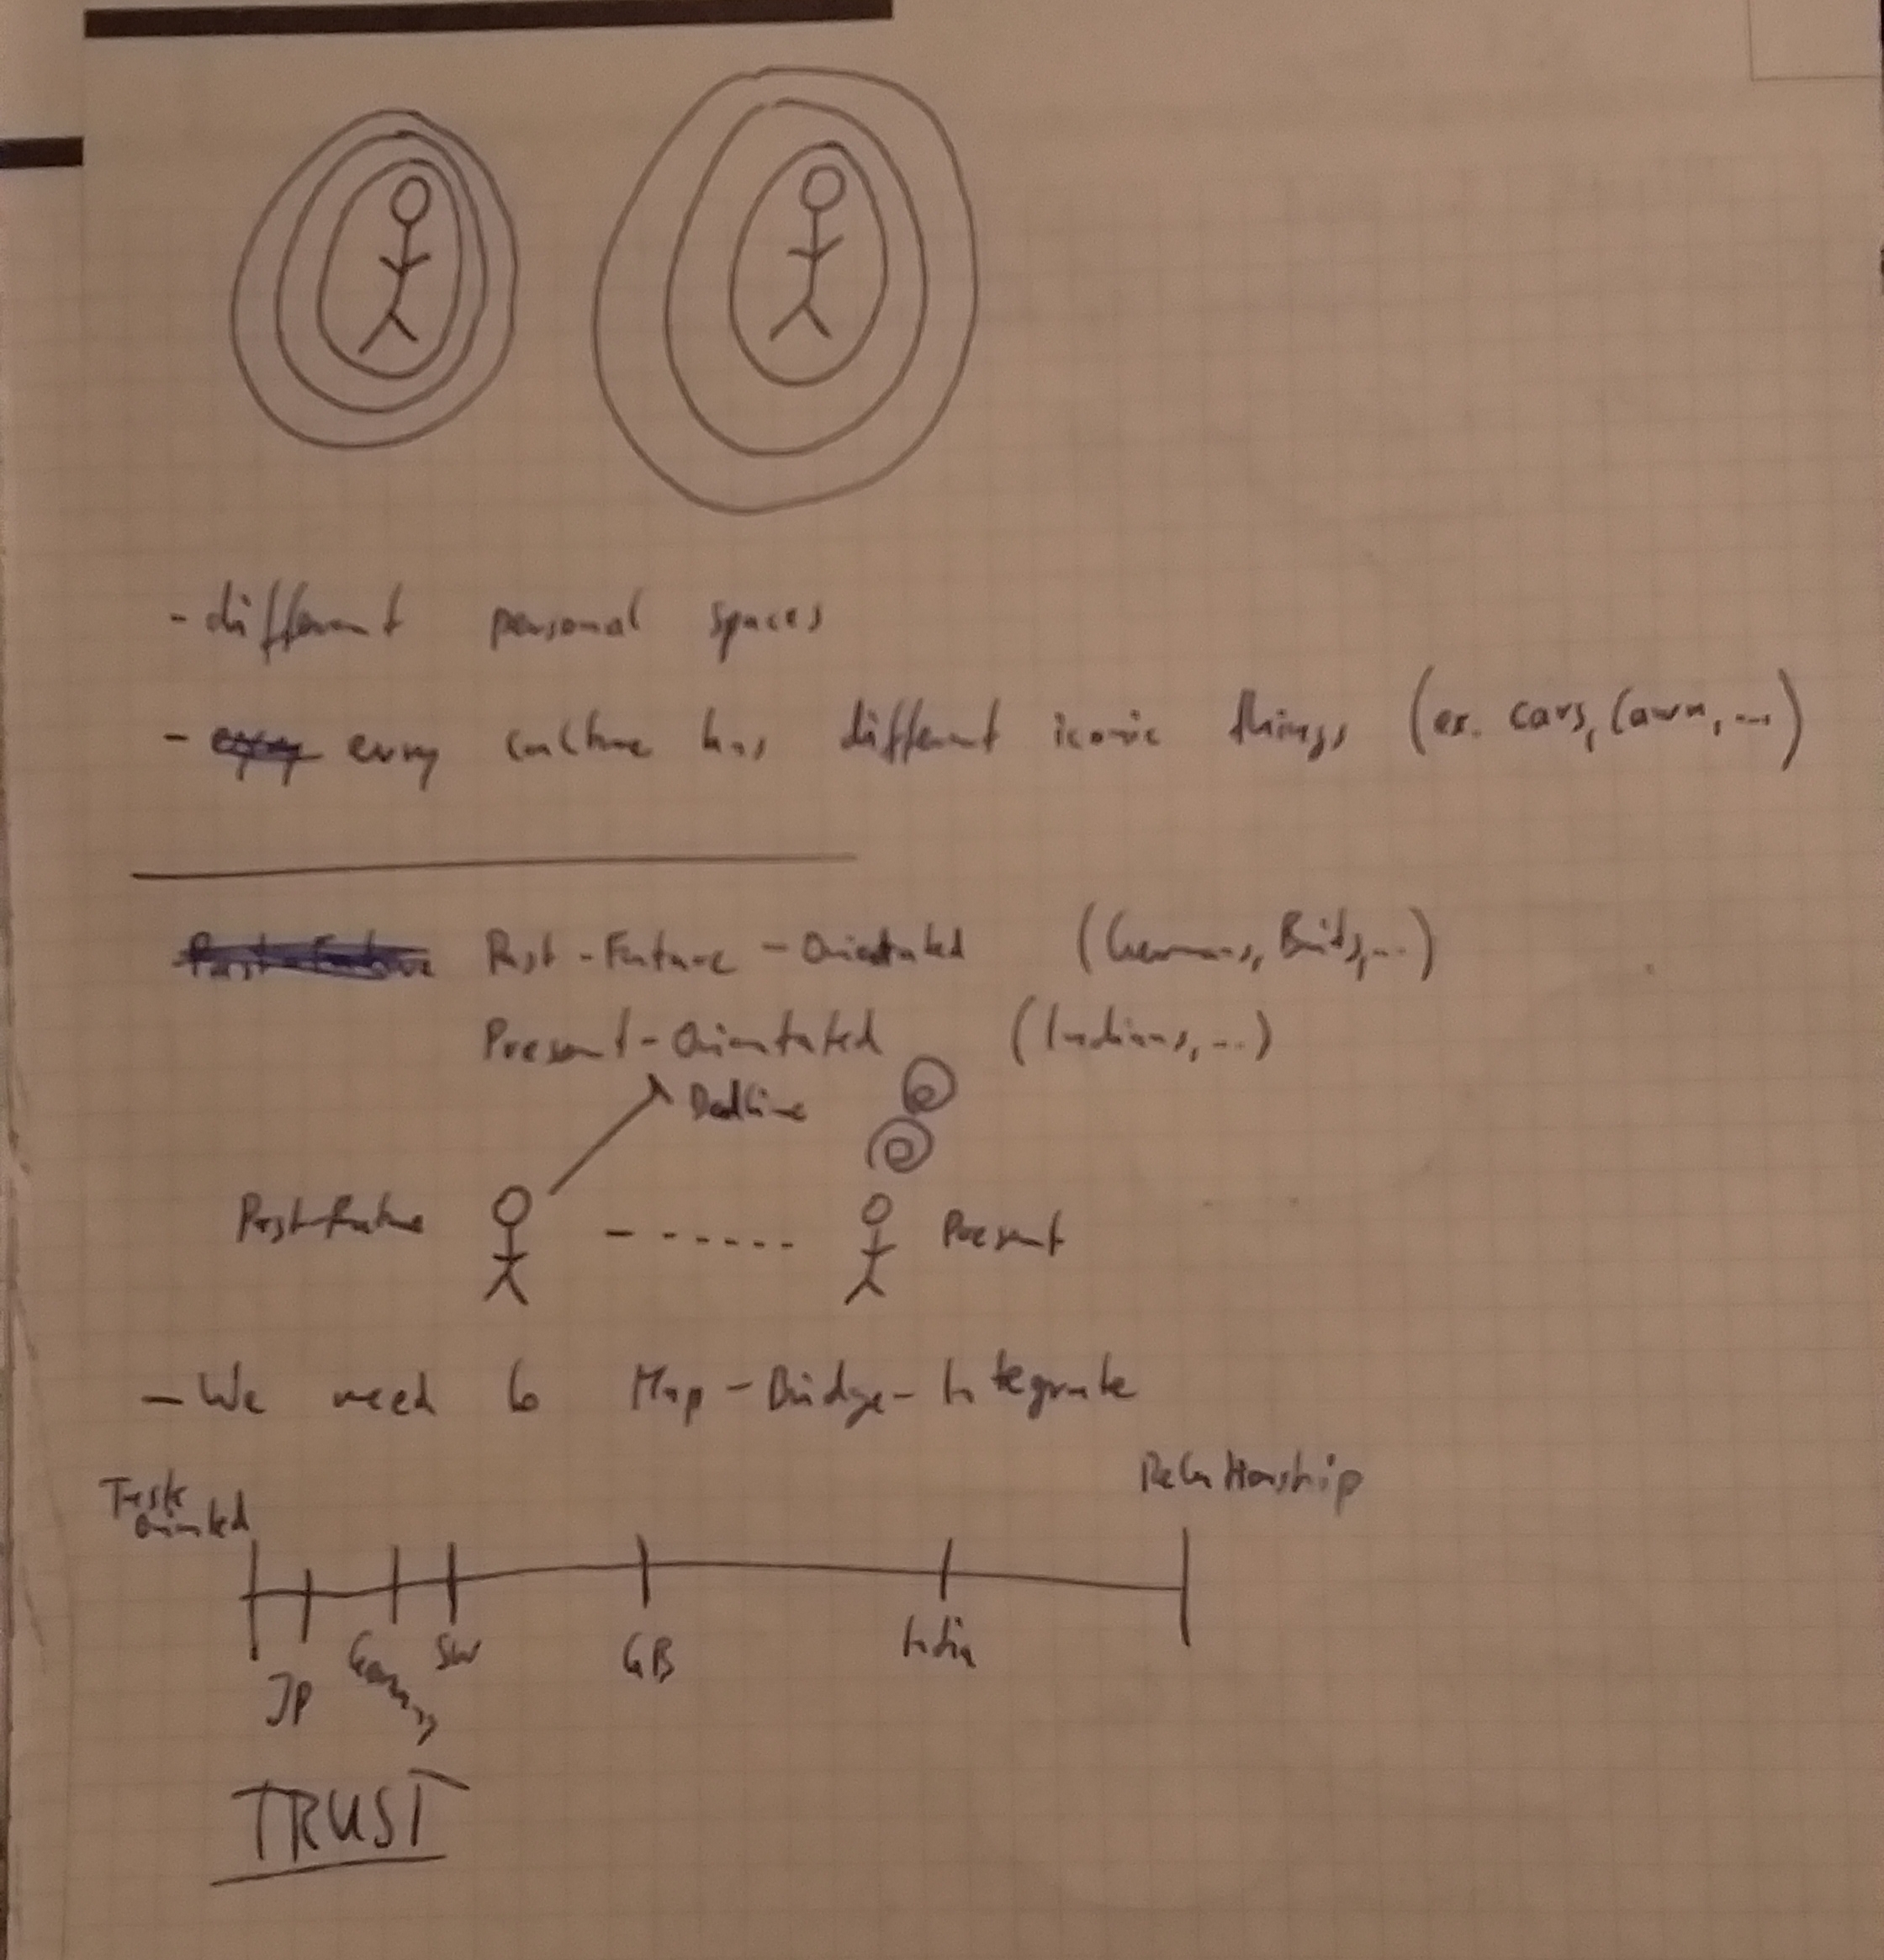 - different personal spaces
- every culture has different iconic things (ex. cars, lawn, ...)
Past-Future-Orientated (Germans, Brits, ...)
Present-Orientated (Indians, ...)
Deadline
Past-Future Present
- We need to Map-Bridge-Integrate
Relationship
Task
Oriented
JP Germany SW GB India
TRUST